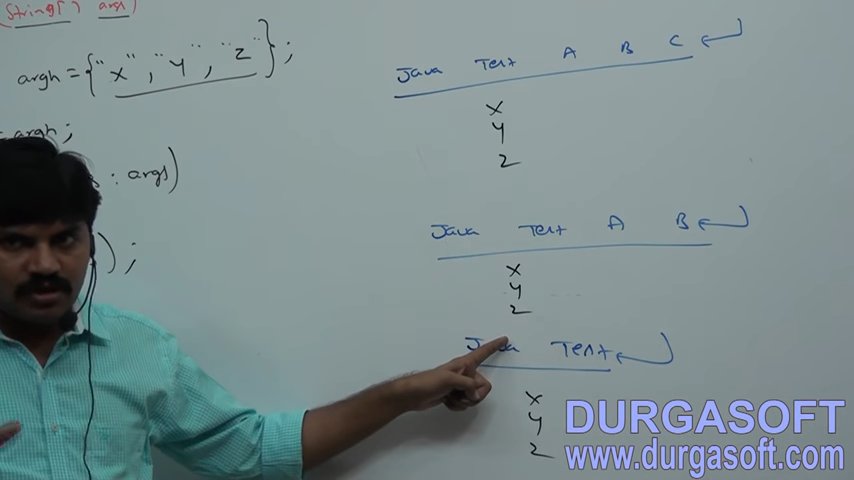 (String[ ] args)
argh = {"X", "Y", "Z"};
= argh;
: args)
);
Java Test A B C
X
Y
Z
Java Test A B
X
Y
Z
Java Test
X
Y
Z
DURGASOFT
www.durgasoft.com